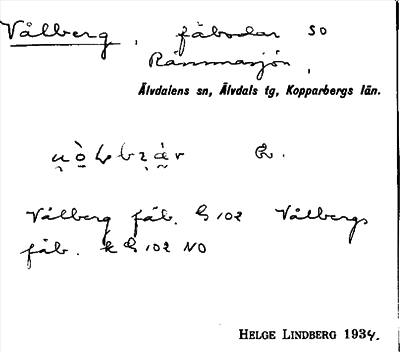 Vålberg, fäbodar SO
Rämmasjön,
Älvdalens sn, Älvdals tg, Kopparbergs län.
Vålberg fäb. G 102 Vålbergs
fäb. k G 102 NO
HELGE LINDBERG 1934.